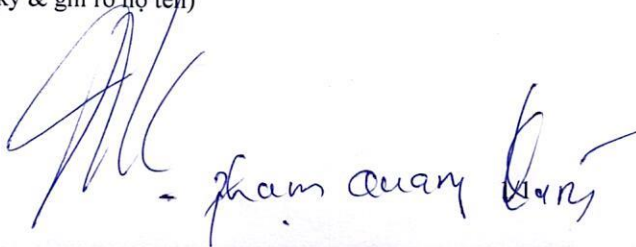 ký & ghi rõ họ tên)
Phạm Quang